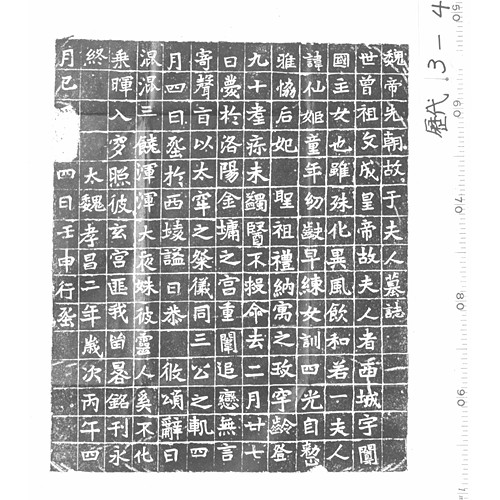 魏帝先朝故于夫人墓誌
世曾祖文成皇帝故夫人者西城宇闐
國主女也雖殊化異風飲和若一夫人
諱仙姬童年幼齓早練女訓四光自整
雅協后妃 聖祖禮納寓之玫宇齡登
九十耋疹未蠲醫不救命去二月廿七
日薨於洛陽金墉之宮重闈追戀無言
寄聲旨以太牢之祭儀同三公之軌四
月四日塟於西堎謚曰恭 攸頌辭曰
混混三饒渾渾大夜姝彼靈人奚不化
乘暉入穸照彼玄宮匪我留晷銘刊永
終 太魏孝昌二年歲次丙午四
月己 四日壬申行塟
歷代.3-4
50 60 70 80 90